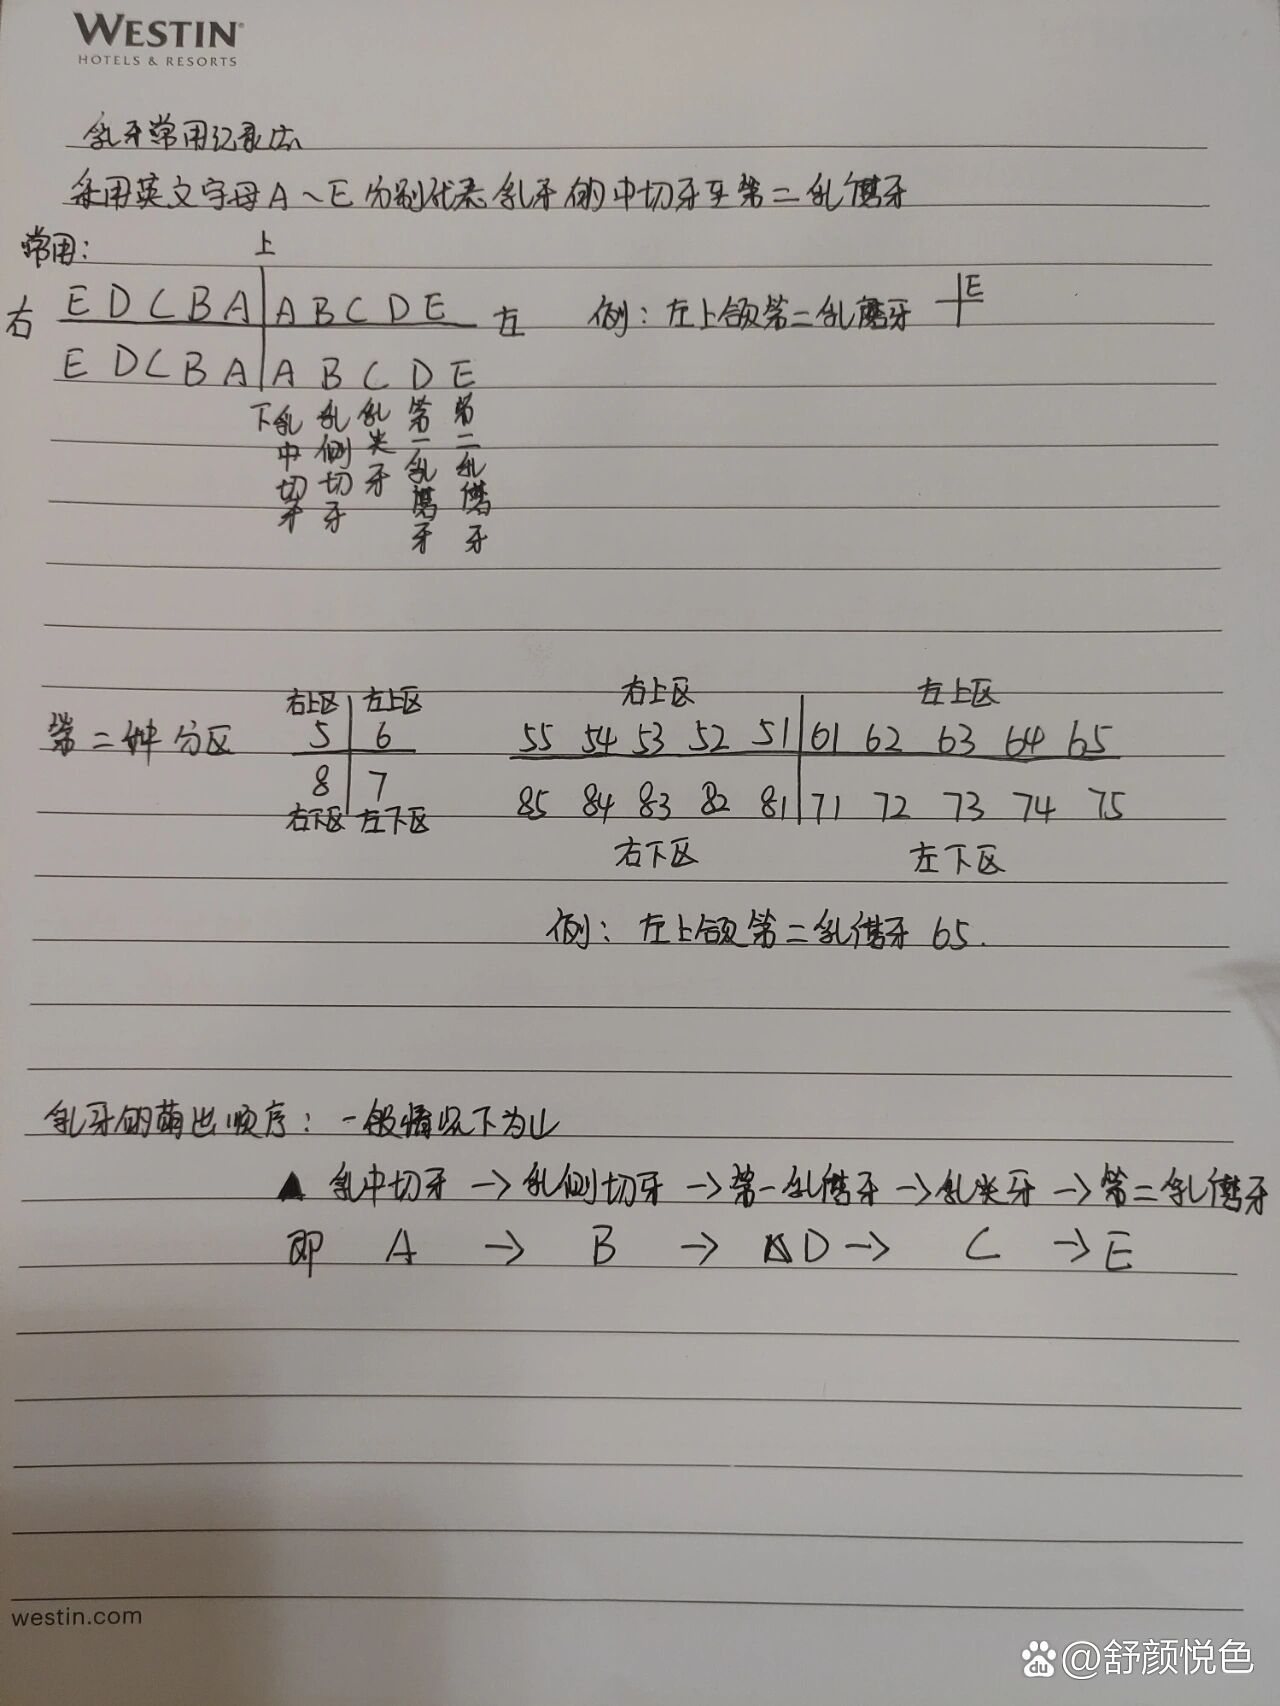 WESTIN
HOTELS & RESORTS
乳牙常用记录法
采用英文字母A~E分别代表乳牙的中切牙至第二乳磨牙
常用：
上
右 E D C B A A B C D E 左 例：左上颌第二乳磨牙 E
E D C B A A B C D E
下
乳中切牙 乳侧切牙 乳尖牙 第一乳磨牙 第二乳磨牙
右上区 左上区 右上区 左上区
第二种分区 5 6 55 54 53 52 51 61 62 63 64 65
8 7 85 84 83 82 81 71 72 73 74 75
右下区 左下区 右下区 左下区
例：左上颌第二乳磨牙 65.
乳牙的萌出顺序：一般情况下为
▲ 乳中切牙→乳侧切牙→第一乳磨牙→乳尖牙→第二乳磨牙
即 A → B → D → C → E
westin.com
du @舒颜悦色